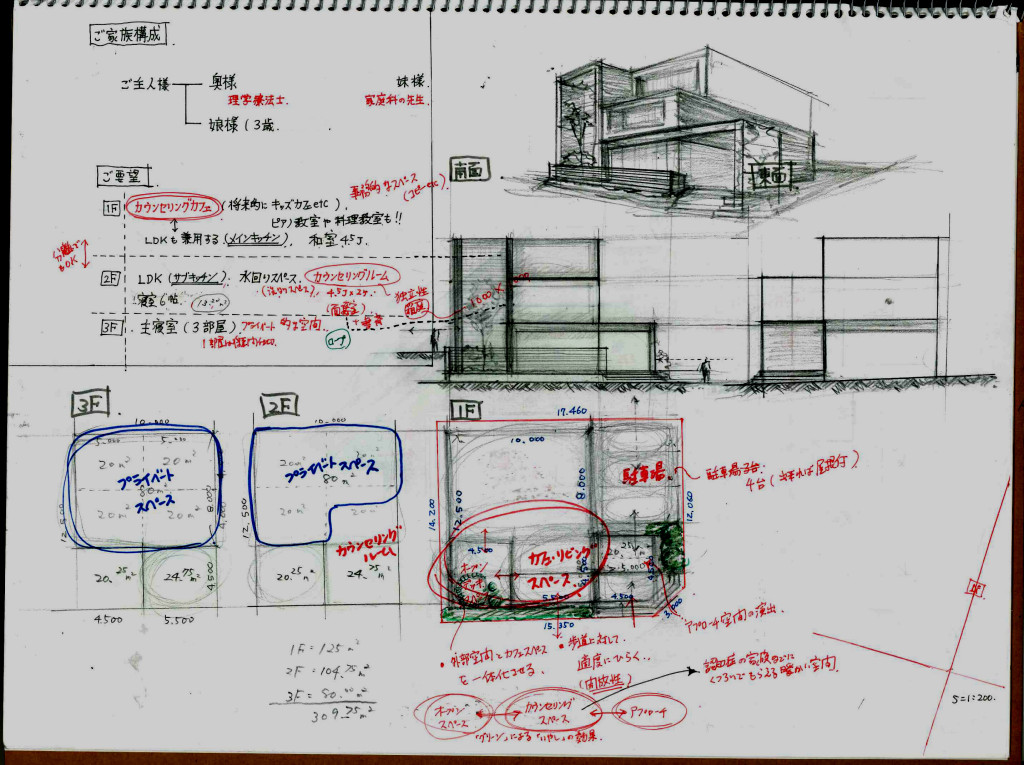 ご家族構成
ご主人様 奥様 妹様
理学療法士. 家庭科の先生.
娘様 (3歳.
ご要望
南面
東面
事務的なスペース
(コピーetc).
1F カウンセリングカフェ (将来的に キッズカフェetc).
ピアノ教室や料理教室も!!
LDKも兼用する (メインキッチン). 和室 4.5J.
分離で
もOK
2F LDK (サブキッチン). 水回りスペース. カウンセリングルーム
4.5J×2ケ.
独立性
寝室 6帖
(面談室)
3F 主寝室 (3部屋) プライベート的な空間
ロープ
3F
10.000
5.000 5.000
20m² 20m²
プライベート
スペース
80m²
20m² 20m²
12.500
8.000
4.500
20.25m² 24.75m²
4.500 5.500
2F
10.000
20m² 20m²
プライベートスペース
80m²
20m² 20m²
12.500
カウンセリング
ルーム
20.25m² 24.75m²
1F
17.460
10.000
14.200
12.500
8.000
12.060
駐車場
駐車場3台.
4台 (出来れば屋根付)
4.500
オープン
デッキ
カフェ・リビング
スペース
5.500
5.000
4.500
3.000
15.350
アプローチ空間の演出
• 外部空間とカフェスペース
を一体化させる.
• 歩道に対して.
適度にひらく..
(開放性)
認知症の家族などに
くつろいでもらえる暖かい空間.
1F = 125m²
2F = 104.75m²
3F = 80.00m²
309.75m²
オープン
スペース
カウンセリング
スペース
アプローチ
"グリーン"による"いやし"の効果.
S=1:200.